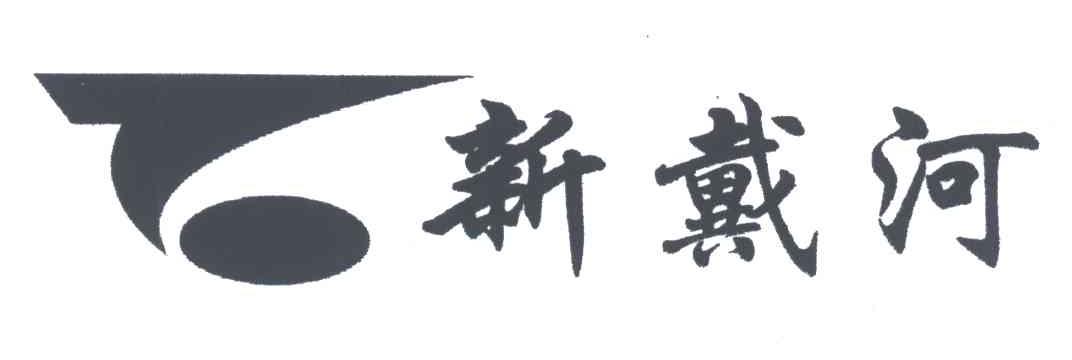 新戴河